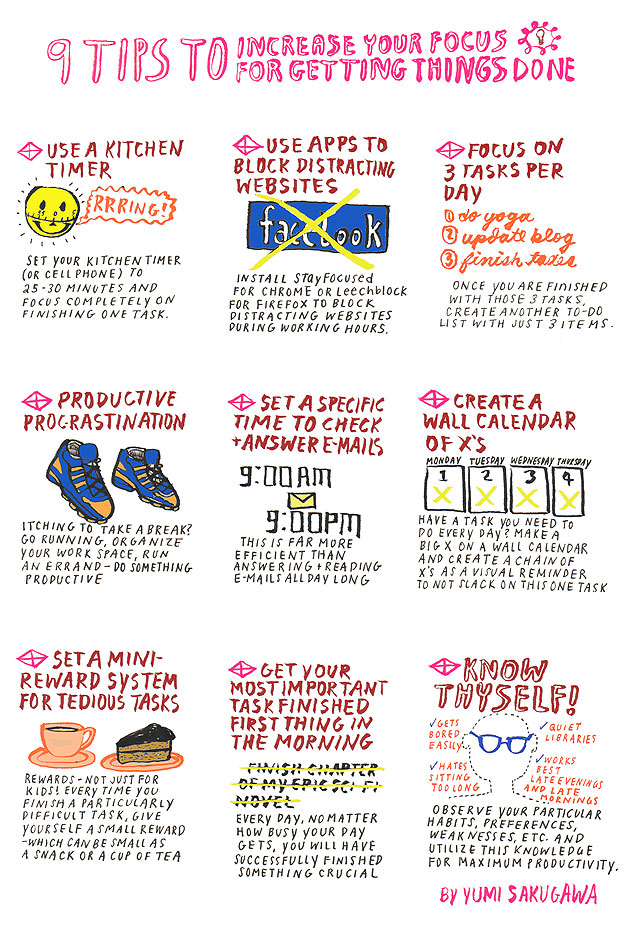 9 TIPS TO INCREASE YOUR FOCUS
FOR GETTING THINGS DONE
USE A KITCHEN
TIMER
RRRING!
SET YOUR KITCHEN TIMER
(OR CELLPHONE) TO
25-30 MINUTES AND
FOCUS COMPLETELY ON
FINISHING ONE TASK.
USE APPS TO
BLOCK DISTRACTING
WEBSITES
facebook
INSTALL StayFocused
FOR CHROME OR Leechblock
FOR FIREFOX TO BLOCK
DISTRACTING WEBSITES
DURING WORKING HOURS.
FOCUS ON
3 TASKS PER
DAY
1 do yoga
2 update blog
3 finish taxes
ONCE YOU ARE FINISHED
WITH THOSE 3 TASKS,
CREATE ANOTHER TO-DO
LIST WITH JUST 3 ITEMS.
PRODUCTIVE
PROCRASTINATION
ITCHING TO TAKE A BREAK?
GO RUNNING, ORGANIZE
YOUR WORK SPACE, RUN
AN ERRAND - DO SOMETHING
PRODUCTIVE
SET A SPECIFIC
TIME TO CHECK
+ ANSWER E-MAILS
9:00AM
9:00PM
THIS IS FAR MORE
EFFICIENT THAN
ANSWERING + READING
E-MAILS ALL DAY LONG
CREATE A
WALL CALENDAR
OF X'S
MONDAY TUESDAY WEDNESDAY THURSDAY
1 2 3 4
X X X X
HAVE A TASK YOU NEED TO
DO EVERY DAY? MAKE A
BIG X ON A WALL CALENDAR
AND CREATE A CHAIN OF
X'S AS A VISUAL REMINDER
TO NOT SLACK ON THIS ONE TASK
SET A MINI-
REWARD SYSTEM
FOR TEDIOUS TASKS
REWARDS - NOT JUST FOR
KIDS! EVERY TIME YOU
FINISH A PARTICULARLY
DIFFICULT TASK, GIVE
YOURSELF A SMALL REWARD
- WHICH CAN BE SMALL AS
A SNACK OR A CUP OF TEA
GET YOUR
MOST IMPORTANT
TASK FINISHED
FIRST THING IN
THE MORNING
FINISH CHAPTER
OF MY EPIC SCI-FI
NOVEL
EVERY DAY, NO MATTER
HOW BUSY YOUR DAY
GETS, YOU WILL HAVE
SUCCESSFULLY FINISHED
SOMETHING CRUCIAL
KNOW
THYSELF!
GETS
BORED
EASILY
HATES
SITTING
TOO LONG
QUIET
LIBRARIES
WORKS
BEST
LATE EVENINGS
AND LATE
MORNINGS
OBSERVE YOUR PARTICULAR
HABITS, PREFERENCES,
WEAKNESSES, ETC. AND
UTILIZE THIS KNOWLEDGE
FOR MAXIMUM PRODUCTIVITY.
BY YUMI SAKUGAWA